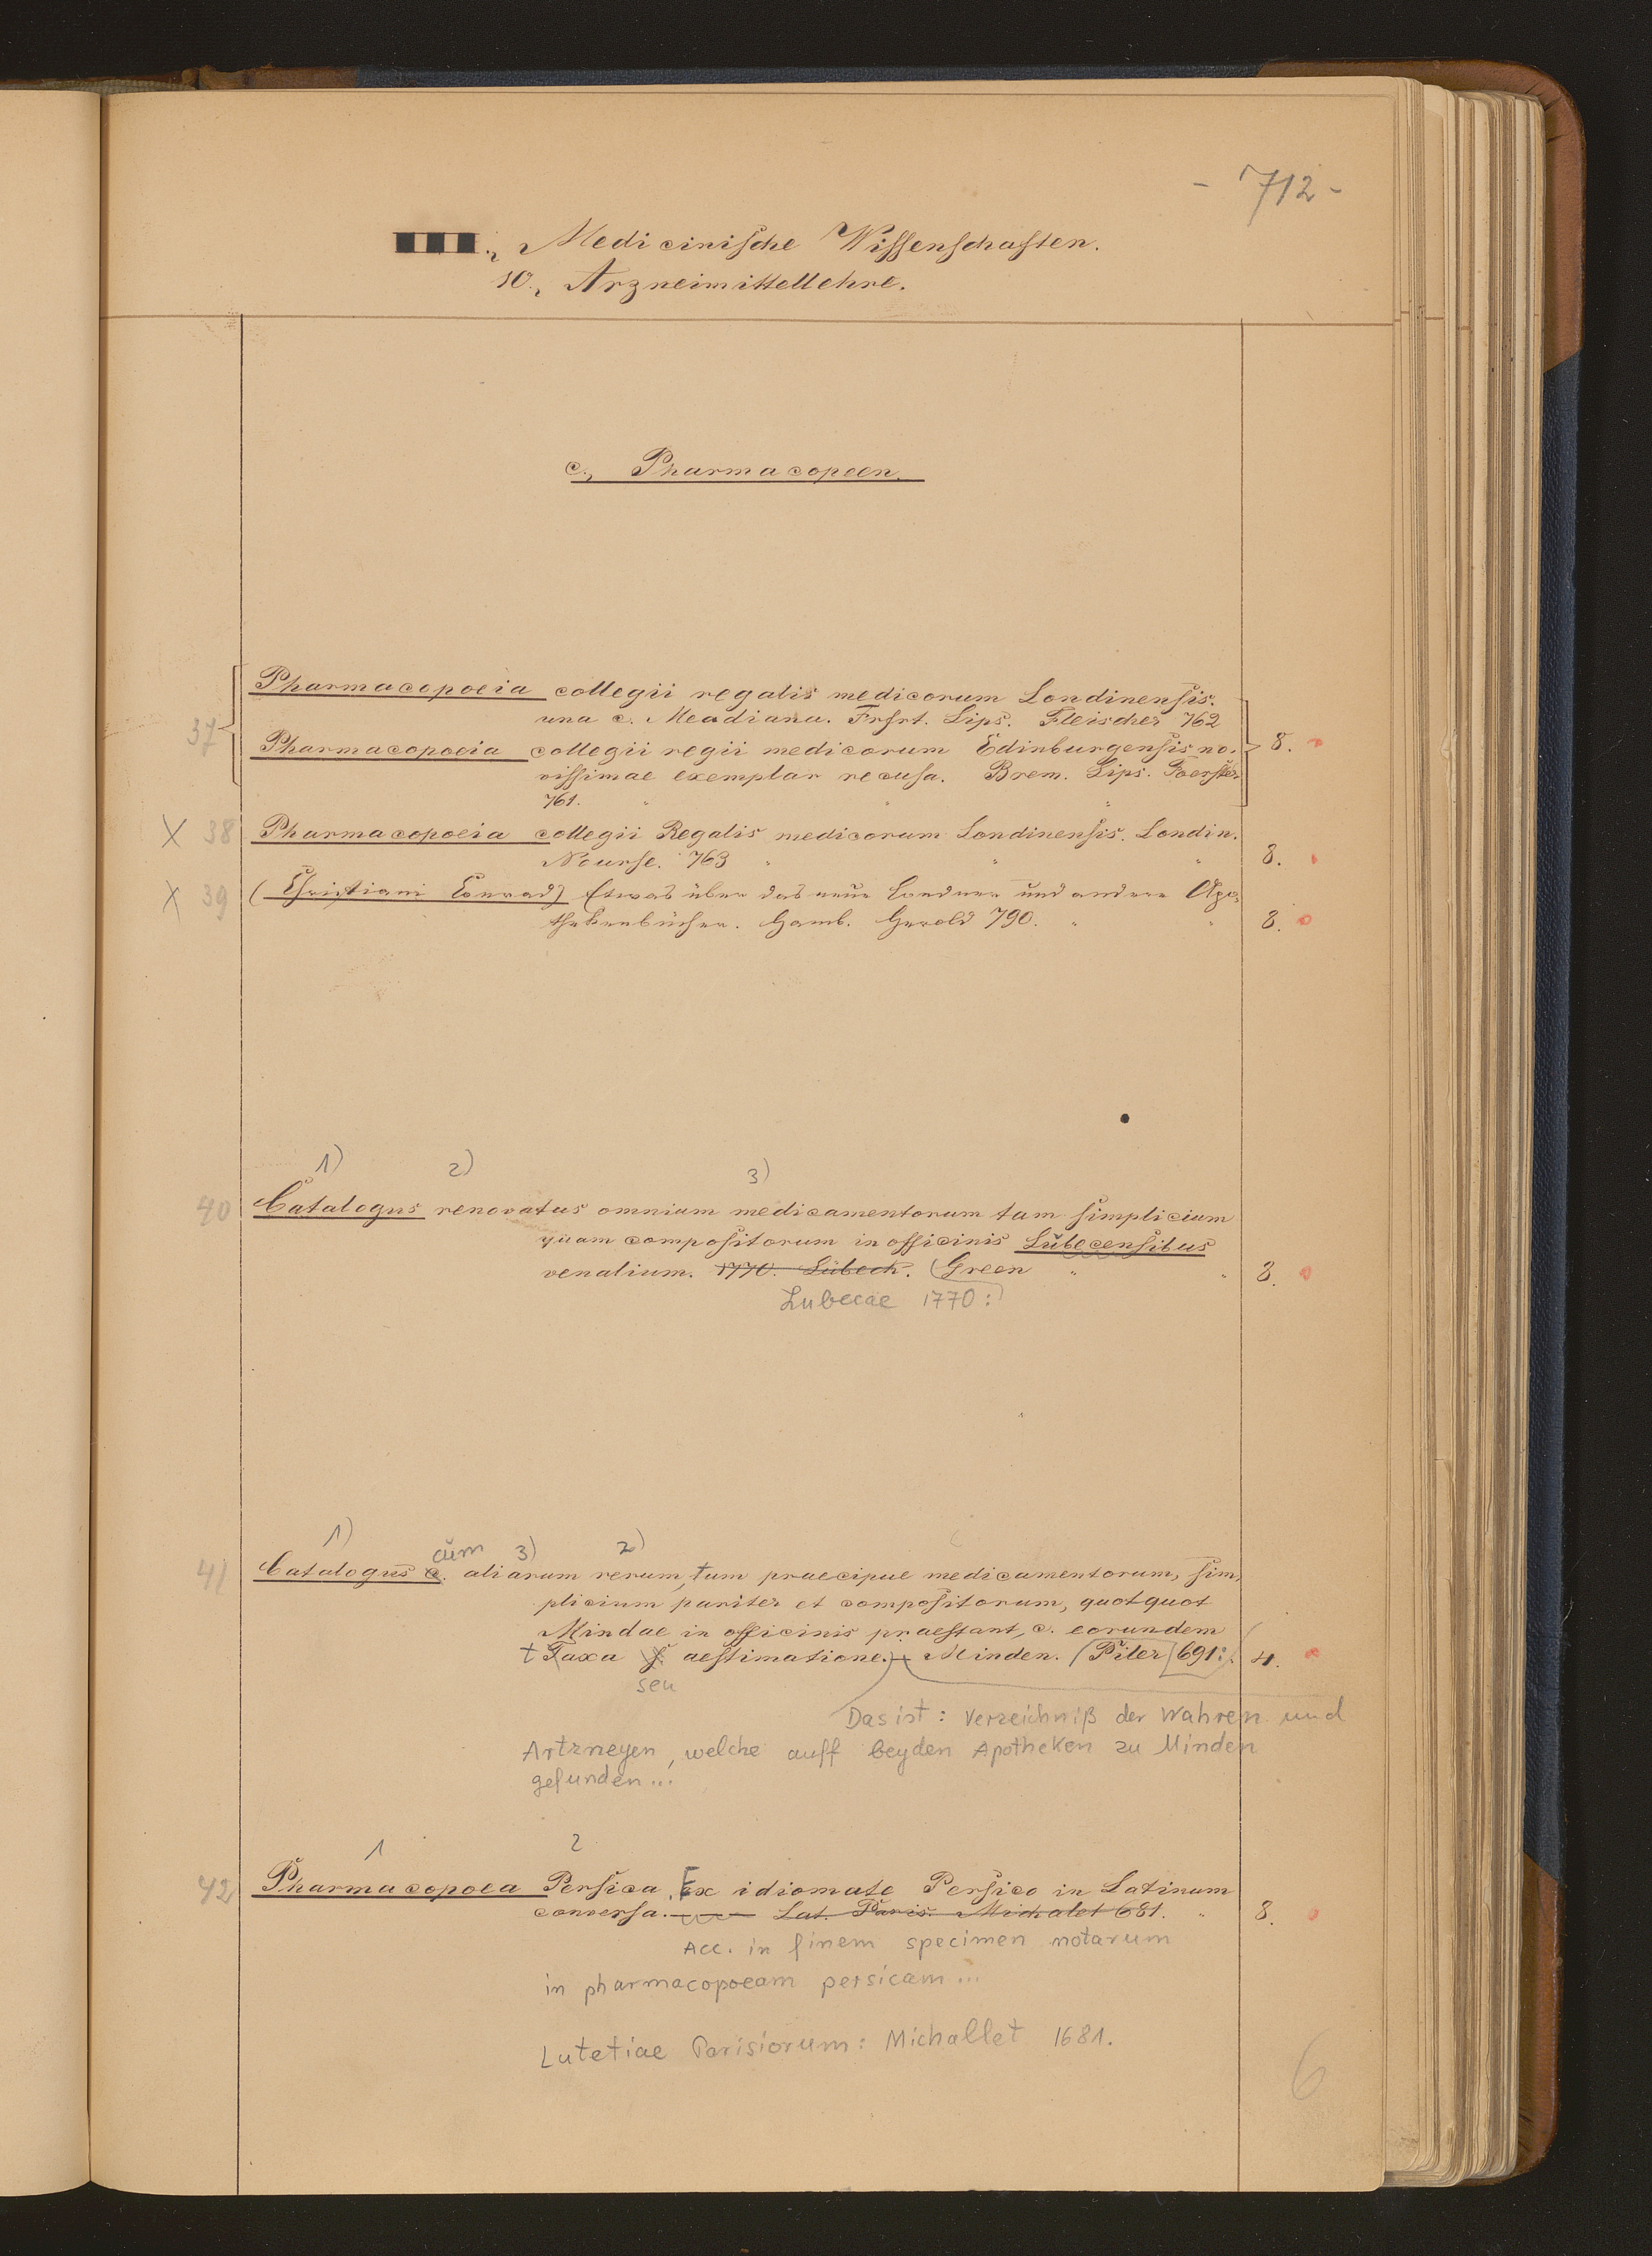 - 712 -
Medicinische Wissenschaften.
10., Arzneimittellehre.
c., Pharmacopoeen.
37 Pharmacopoeia collegii regalis medicorum Londinensis.
una c. Meadiana. Frfrt. Lips. Fleischer 762
Pharmacopoeia collegii regii medicorum Edinburgensis no- 8.
vissimae exemplar recusa. Brem. Lips. Foerster
761. " " "
X 38 Pharmacopoeia collegii Regalis medicorum Londinensis. Londin.
Nourse. 763 " " " 8.
X 39 (Christiani Conrad) Etwas über das neue Londner und andere Apo-
thekenbücher. Hamb. Herold 790. " " 8.
1) 2) 3)
40 Catalogus renovatus omnium medicamentorum tam simplicium
quam compositorum in officinis Lübecensibus
venalium. 1770. Lübeck. (Green " " 8.
Lubecae 1770:)
1) cum 3) 2)
41 Catalogus c. aliarum rerum, tum praecipue medicamentorum, sim-
plicium pariter et compositorum, quotquot
Mindae in officinis praestant, c. eorundem
t Taxa s. aestimatione. - Minden. (Piler 691:) 4.
seu
Das ist: Verzeichniß der Wahren und
Artzneyen, welche auff beyden Apotheken zu Minden
gefunden...
1 2
42 Pharmacopoea Persica. Ex idiomate Persico in Latinum
conversa. Lat. Paris. Michalet 681. " 8.
Acc. in finem specimen notarum
in pharmacopoeam persicam...
Lutetiae Parisiorum: Michallet 1681.
6